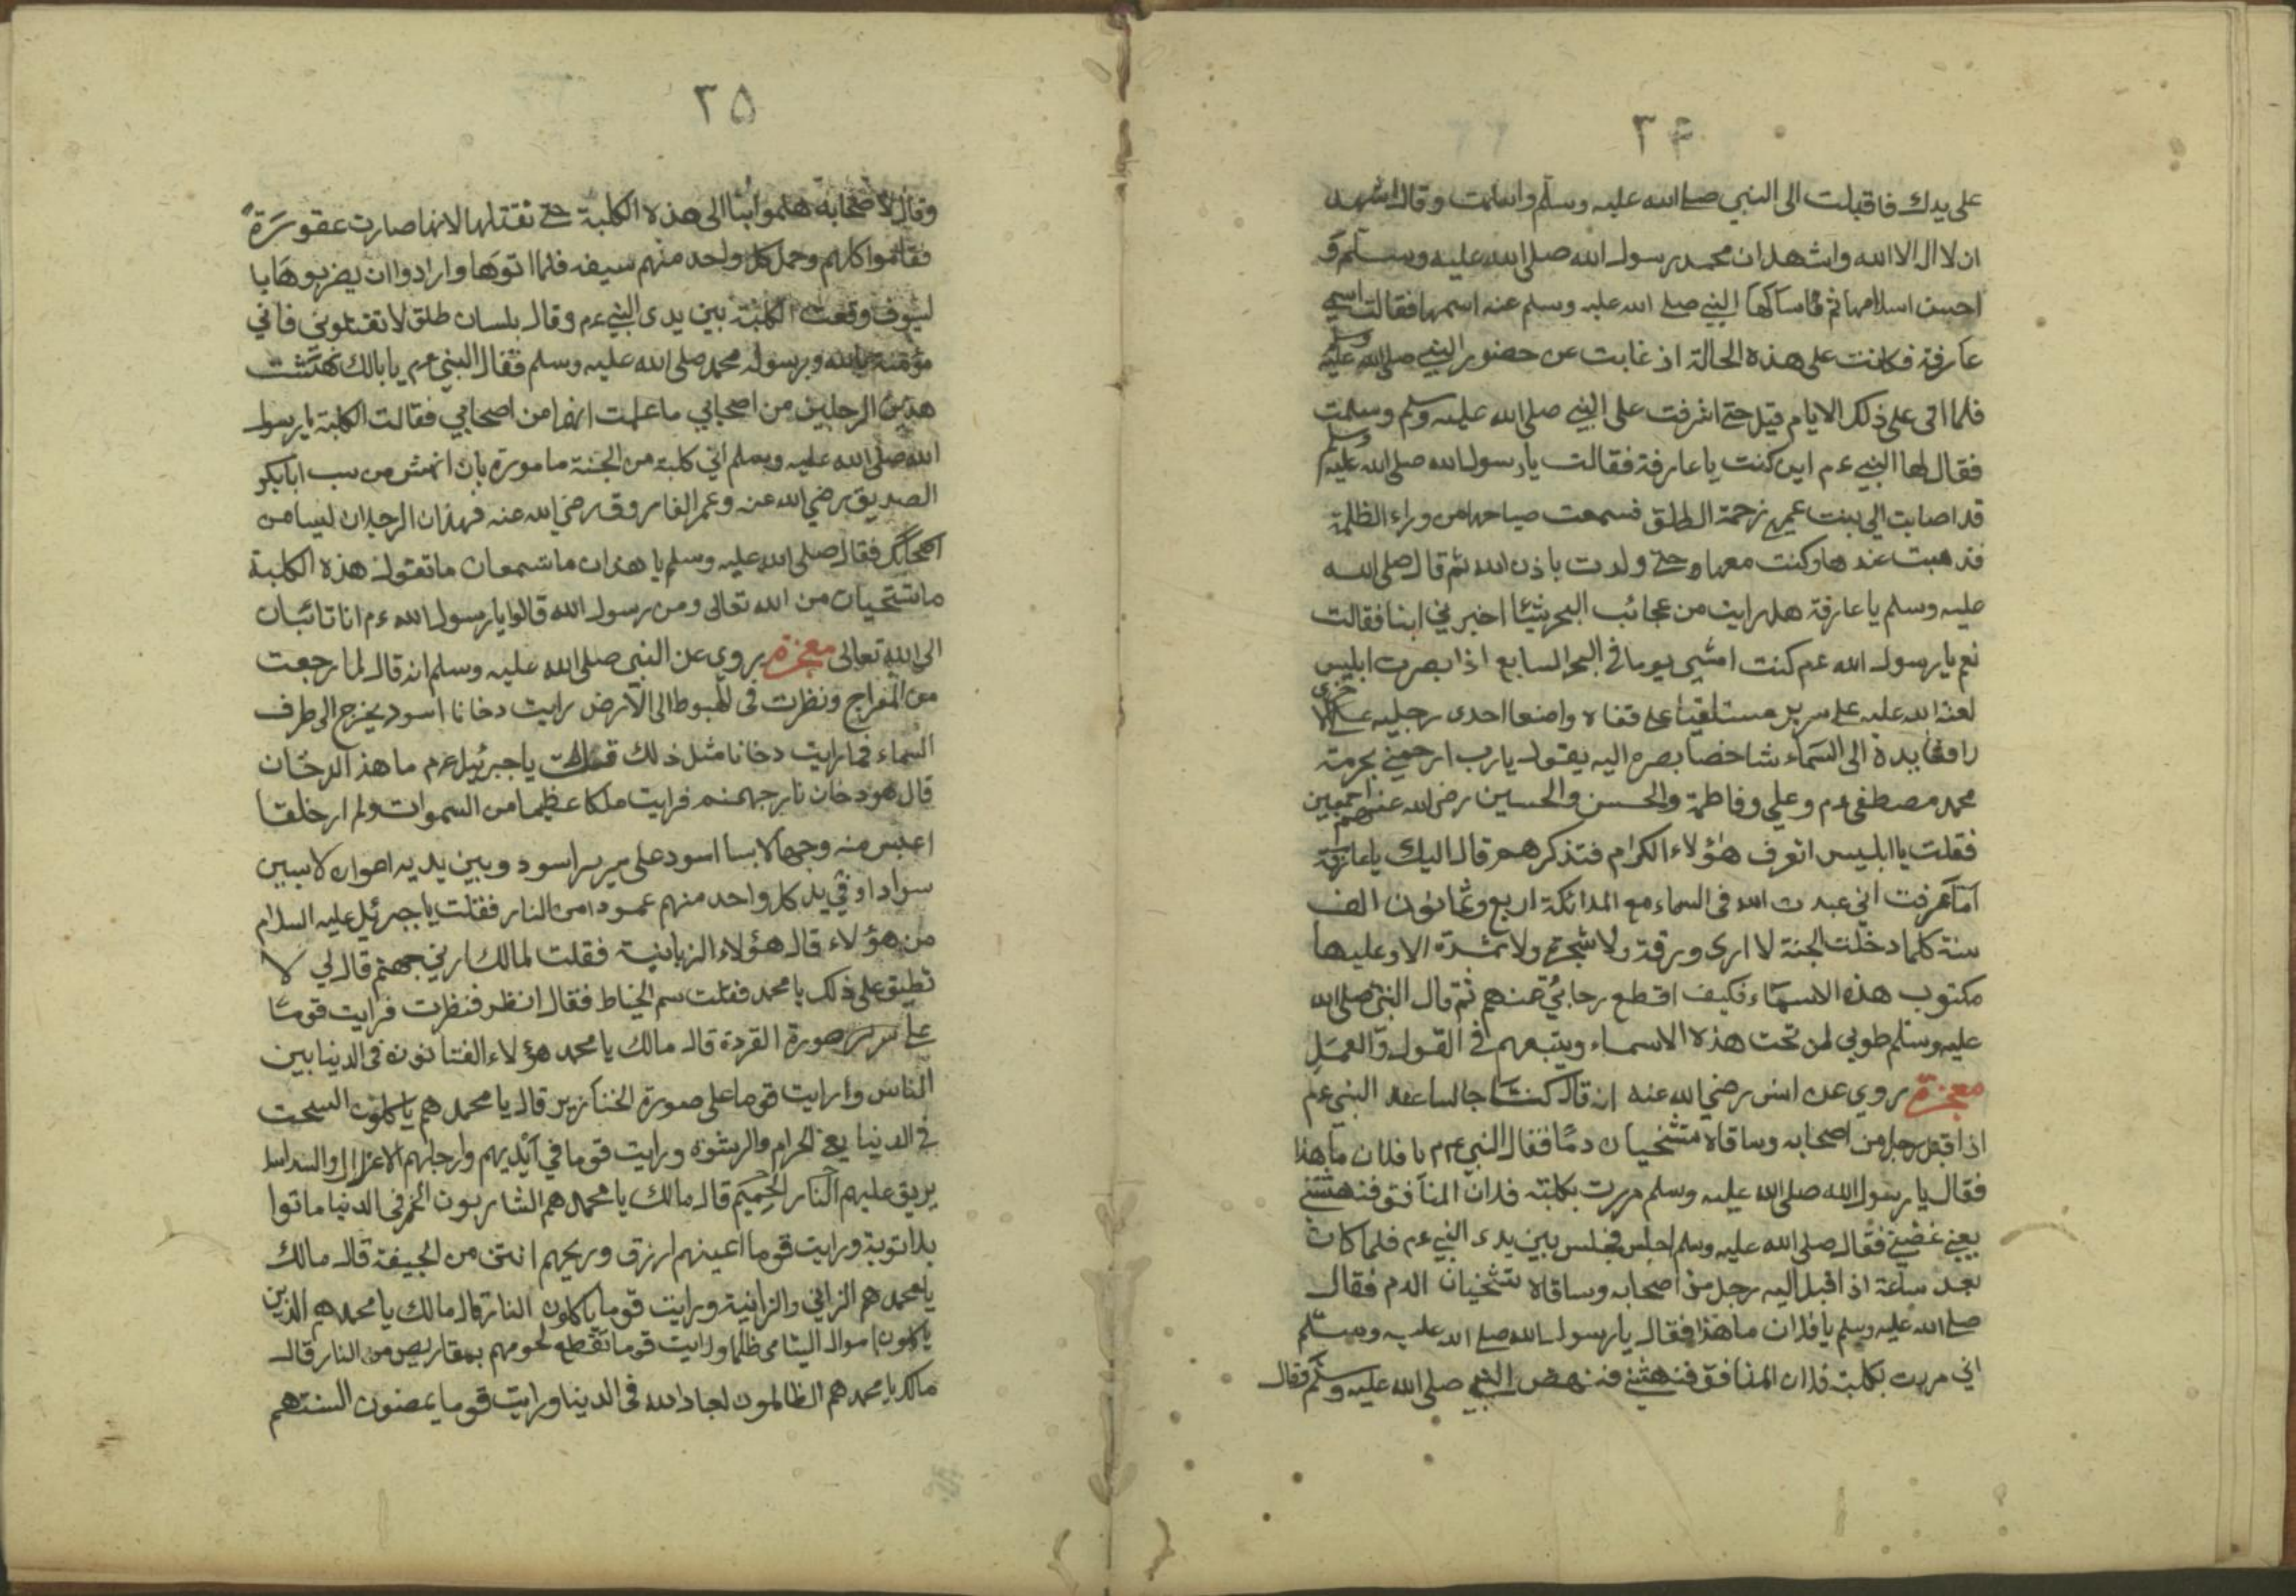 ٣٤
على يدك فاقبلت الى النبي صلى الله عليه وسلم واسلمت وقال اشهد
ان لا اله الا الله واشهد ان محمد رسول الله صلى الله عليه وسلم و
احسن اسلامها ثم سالها النبي صلى الله عليه وسلم عنه اسمها فقالت اسمي
عارفة فكانت على هذه الحالة اذ غابت عن حضور النبي صلى الله عليه وسلم
فلما اتى على ذلك الايام قيل حتى اشرفت على النبي صلى الله عليه وسلم وسلمت
فقال لها النبي ءم اين كنت يا عارفة فقالت يا رسول الله صلى الله عليه وسلم
قد اصابت الى بنت عمي زحمة الطلق فسمعت صياحها من وراء الظلمة
فذهبت عندها وكنت معها حتى ولدت باذن الله ثم قال صلى الله
عليه وسلم يا عارفة هل رايت من عجائب البحر شيئا اخبرني ابنا فقالت
نعم يا رسول الله ءم كنت امشي يوما في البحر السابع اذا بصرت ابليس
لعنة الله عليه على سرير مستلقيا على قفاه واضعا احدى رجليه على الاخرى
رافعا يده الى السماء شاخصا بصره اليه يقول يارب ارحمني بحرمة
محمد مصطفى ءم وعلي وفاطمة والحسن والحسين رضى الله عنهم اجمعين
فقلت يا ابليس اتعرف هؤلاء الكرام فتذكرهم قال اليك يا عارفة
اما عرفت اني عبدت الله في السماء مع الملائكة اربع وثمانون الف
سنة كلما دخلت الجنة لا ارى ورقة ولا شجرة ولا ثمرة الا وعليها
مكتوب هذه الاسماء فكيف اقطع رجائي عنهم ثم قال النبي صلى الله
عليه وسلم طوبى لمن تحت هذه الاسماء ويتبعهم في القول والعمل
معجزة روي عن انس رضي الله عنه انه قال كنت جالسا عند النبي ءم
اذا قبل رجل من اصحابه وساقاه متشخبان دما فقال النبي ءم يا فلان ما هذا
فقال يا رسول الله صلى الله عليه وسلم مررت بكلبة فلان المنافق فنهشتني
يعني غضبني فقال صلى الله عليه وسلم اجلس فجلس بين يدى النبي ءم فلما كان
بعد ساعة اذ اقبل اليه رجل من اصحابه وساقاه تشخبان الدم فقال
صلى الله عليه وسلم يا فلان ما هذا فقال يا رسول الله صلى الله عليه وسلم
اني مررت بكلبة فلان المنافق فنهشني فنهض النبي صلى الله عليه وسلم فقال
٣٥
وقال لاصحابه هلموا بنا الى هذه الكلبة حتى نقتلها لانها صارت عقورة
فقاموا كلهم وحمل كل واحد منهم سيفه فلما اتوها وارادوا ان يضربوها با
لسيوف وقعت الكلبة بين يدى النبي ءم وقال بلسان طلق لا تقتلوني فاني
مؤمنة بالله وبرسوله محمد صلى الله عليه وسلم فقال النبي ءم يا بالك نهشت
هذين الرجلين من اصحابي ما علمت انهما من اصحابي فقالت الكلبة يا رسول
الله صلى الله عليه وسلم اني كلبة من الجنة مامورة بان انهش من سب ابا بكر
الصديق رضي الله عنه وعمر الفاروق رضي الله عنه فهذان الرجلان ليسا من
اصحابك فقال صلى الله عليه وسلم يا هذان ما تسمعان ما تقول هذه الكلبة
ما تستحيان من الله تعالى ومن رسول الله قالوا يا رسول الله ءم انا تائبان
الى الله تعالى معجزة روي عن النبي صلى الله عليه وسلم انه قال لما رجعت
من المعراج ونظرت في الهبوط الى الارض رايت دخانا اسود يخرج الى طرف
السماء فما رايت دخانا مثل ذلك قلت يا جبرئيل ءم ما هذا الدخان
قال هو دخان نار جهنم فرايت ملكا عظيما من السموات ولم ار خلقا
اعبس منه وجها لابسا اسود على سرير اسود وبين يديه اعوان لابسين
سوادا وفي يد كل واحد منهم عمودا من النار فقلت يا جبرئيل عليه السلام
من هؤلاء قال هؤلاء الزبانية فقلت لمالك ارني جهنم قال لي لا
تطيق على ذلك يا محمد فقلت سم الخياط فقال انظر فنظرت فرايت قوما
على سرر صورة القردة قال مالك يا محمد هؤلاء الفتانون في الدنيا بين
الناس وارايت قوما على صورة الخنازير قال يا محمد هم ياكلون السحت
في الدنيا يعني الحرام والرشوة ورايت قوما في ايديهم وارجلهم الاغلال والسلاسل
يريق عليهم النار الحميم قال مالك يا محمد هم الشاربون الخمر في الدنيا ماتوا
بلا توبة ورايت قوما اعينهم ازرق وريحهم انتن من الجيفة قال مالك
يا محمد هم الزاني والزانية ورايت قوما ياكلون النار قال مالك يا محمد هم الذين
ياكلون اموال اليتامى ظلما ورايت قوما تقطع لحومهم بمقاريص من النار قال
مالك يا محمد هم الظالمون لعباد الله في الدنيا ورايت قوما يعضون السنتهم